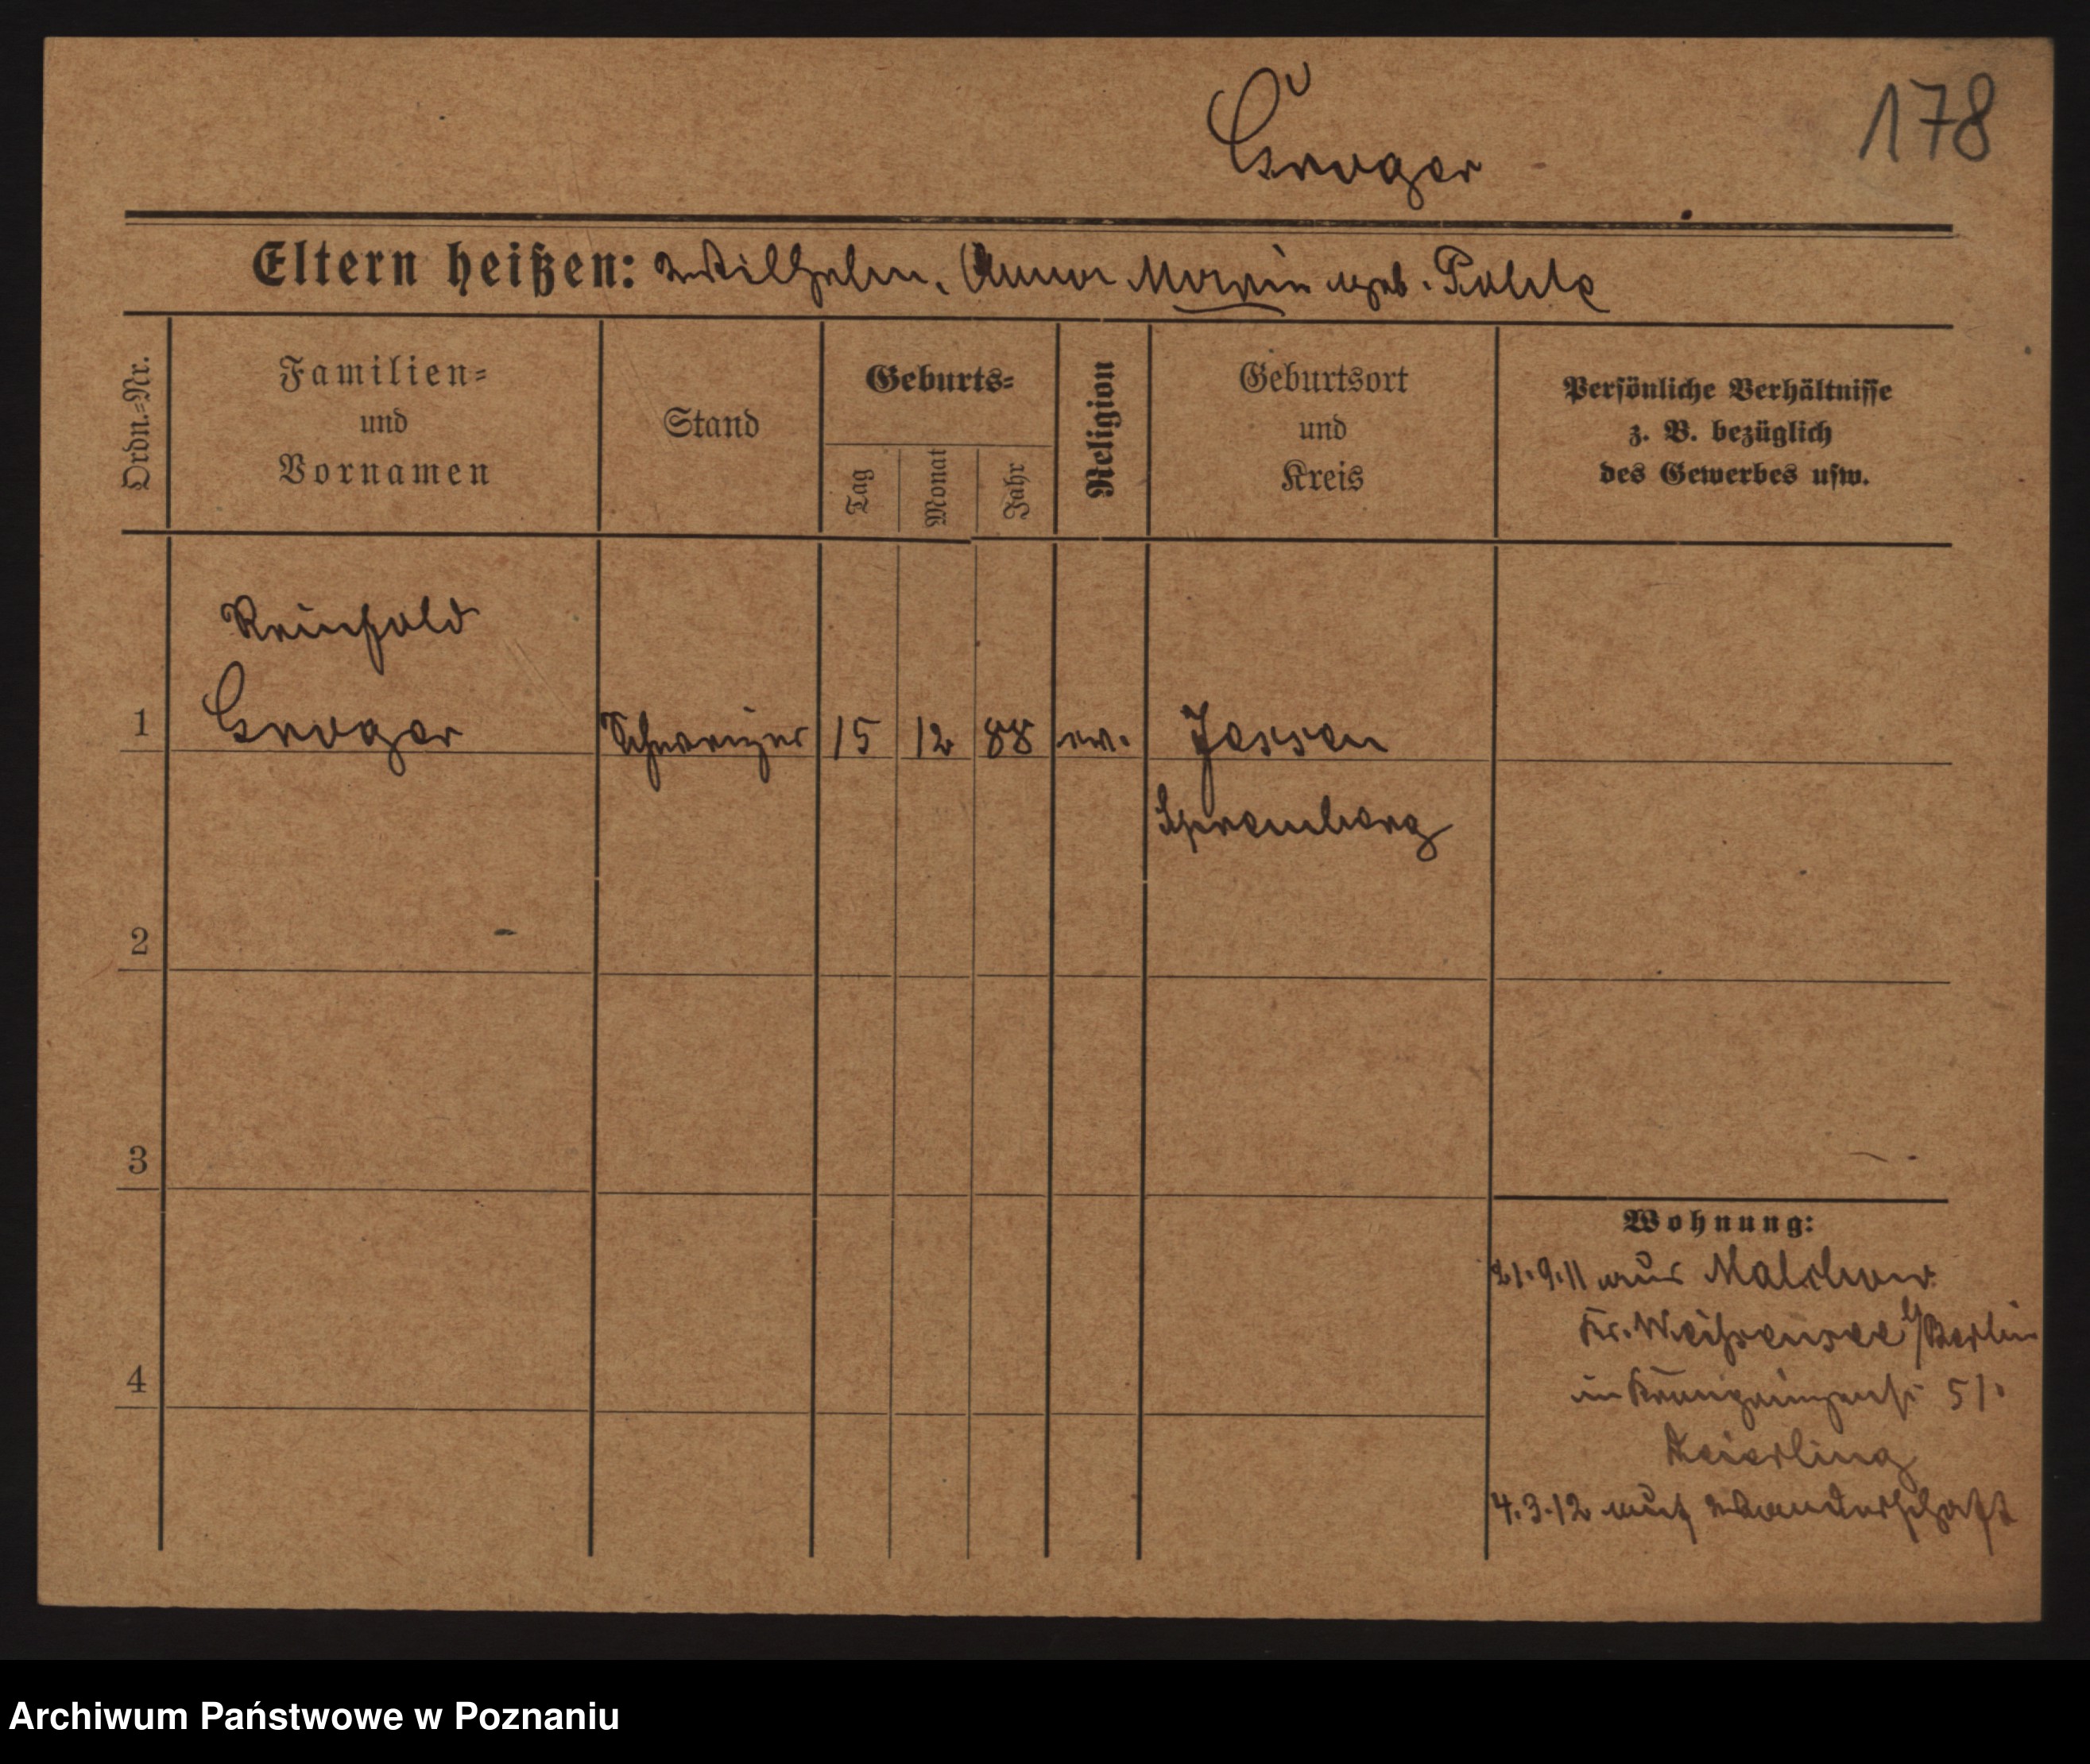 178
Eltern heißen: Wilhelm, Anna Maria geb.
Ordn.=Nr.
Familien=
und
Vornamen
Stand
Geburts=
Tag
Monat
Jahr
Religion
Geburtsort
und
Kreis
Persönliche Verhältnisse
z. B. bezüglich
des Gewerbes usw.
Reinhold
1 Schweizer 15 12 88 ev. Jessen
Spremberg
2
3
4
Wohnung:
21.9.11 aus Malchow
Kr. Weißensee b/Berlin
51.
4.3.12 auf Wanderschaft
Archiwum Państwowe w Poznaniu